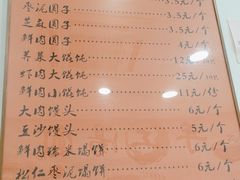 枣泥团子 3.5元/个
芝麻团子 3.5元/个
鲜肉团子 4元/个
荠菜大馄饨
虾肉大馄饨 25元/
鲜肉小馄饨 11元/
大肉馒头 6元/个
豆沙馒头 5元/个
鲜肉糯米塌饼 6元/个
松仁枣泥塌饼 6元/个